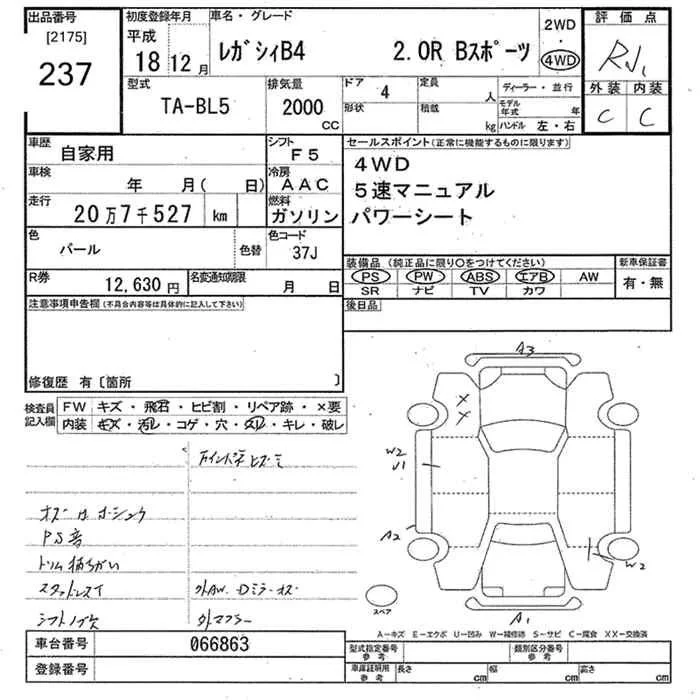 出品番号
[2175]
237
初度登録年月
平成
18 12月
車名・グレード
レガシィB4 2.0R Bスポーツ
2WD
・
4WD
評価点
外装 内装
C C
型式
TA-BL5
排気量
2000
CC
ドア 4
形状
定員
人
積載
kg
ディーラー・並行
モデル年式 年
ハンドル 左・右
車歴
自家用
シフト
F5
車検
年 月( 日)
冷房
AAC
走行
20万7千527 km
燃料
ガソリン
色
パール
色替
色コード
37J
R券
12,630円
名変通知期限
月 日
セールスポイント(正常に機能するものに限ります)
4WD
5速マニュアル
パワーシート
装備品(純正品に限り○をつけてください)
PS PW ABS エアB AW
SR ナビ TV カワ
新車保証書
有・無
後日品
注意事項申告欄(不具合内容等は具体的に記入して下さい)
修復歴 有〔箇所 〕
検査員
記入欄
FW キズ・飛石・ヒビ割・リペア跡・×要
内装 キズ・汚レ・コゲ・穴・スレ・キレ・破レ
PS音
スタッドレスイ
外AW. Dミラーキズ
外マフラー
A3
X
X
W2
U1
A2
W2
A1
スペア
A−キズ E−エクボ U−凹み W−補修跡 S−サビ C−腐食 XX−交換済
車台番号 066863
登録番号
型式指定番号
参考
類別区分番号
参考
車庫証明用
参考
長さ cm 幅 cm 高さ cm